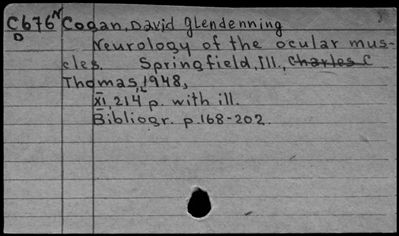 C676N Cogan, David Glendenning
D
Neurology of the ocular mus-
cles. Springfield, Ill., Charles C
Thomas, 1948,
XI, 214 p. with ill.
Bibliogr. p. 168-202.